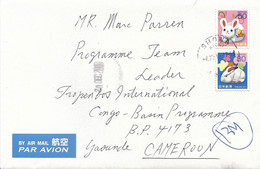 MR. Marc Parren
Programme Team
Leader
Tropenbos International
Congo-Basin Programme
B.P. 4173
Yaounde CAMEROUN
BY AIR MAIL 航空
PAR AVION
50